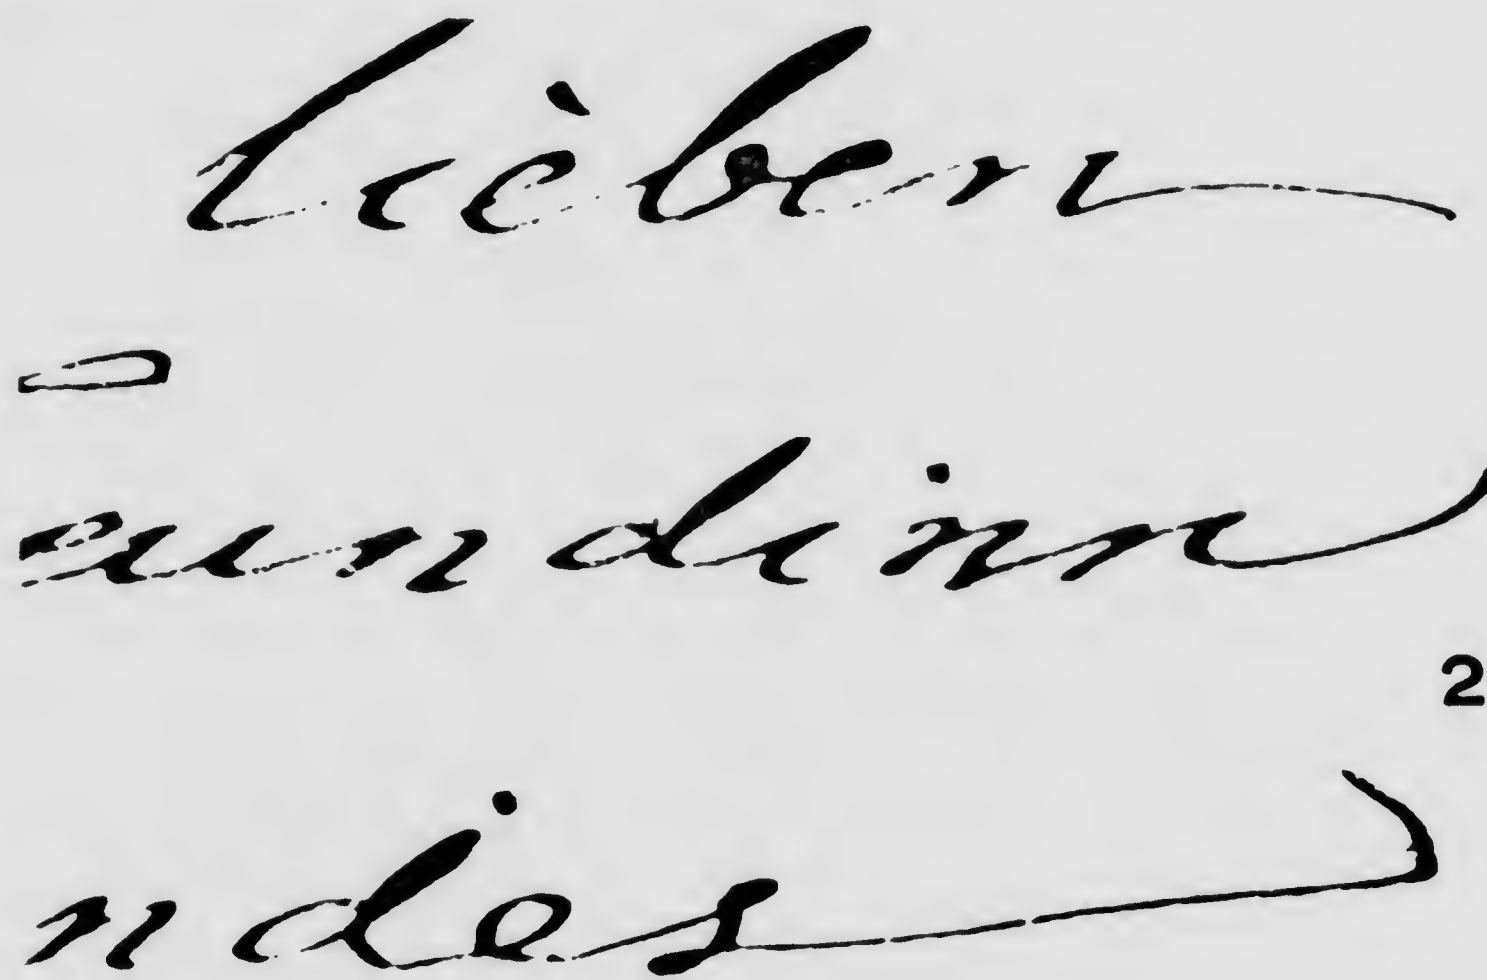 lieben
eundinn
2
ndes